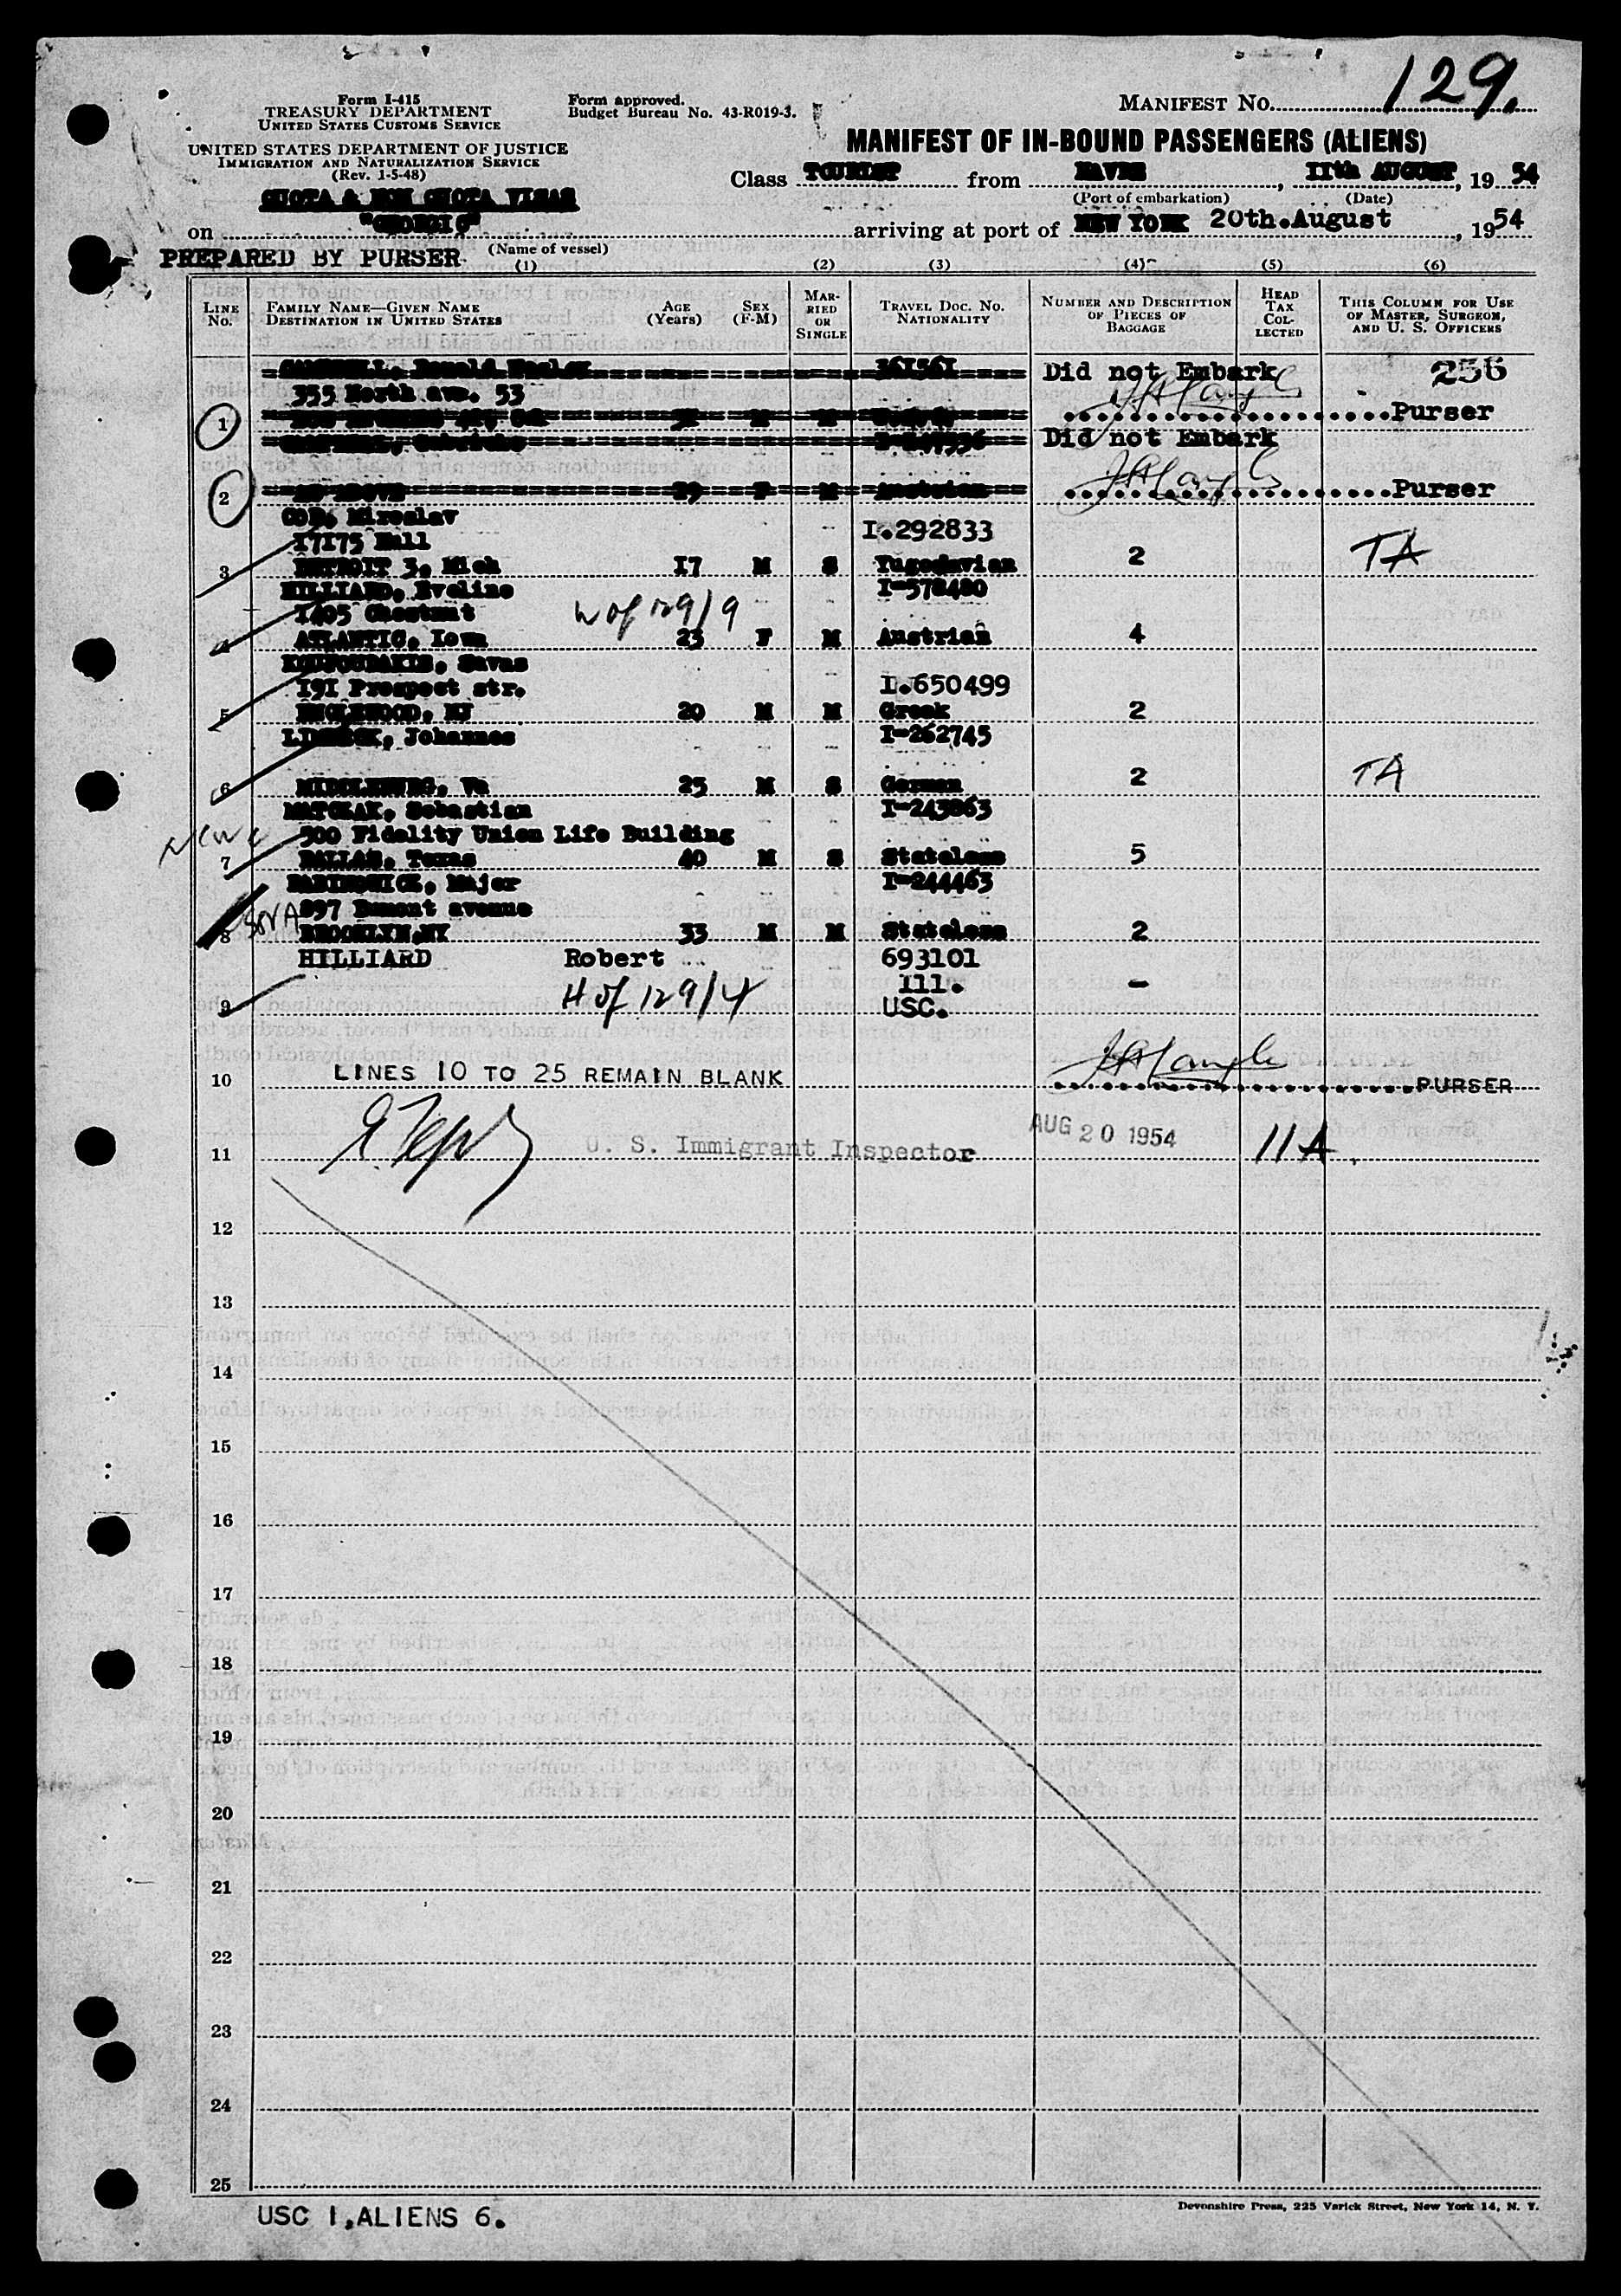 129.
Form I-415
TREASURY DEPARTMENT
UNITED STATES CUSTOMS SERVICE
Form approved.
Budget Bureau No. 43-R019-3.
MANIFEST NO.
UNITED STATES DEPARTMENT OF JUSTICE
IMMIGRATION AND NATURALIZATION SERVICE
(Rev. 1-5-48)
MANIFEST OF IN-BOUND PASSENGERS (ALIENS)
QUOTA & NON QUOTA VISAS
Class TOURIST from HAVRE, 11th AUGUST, 1954
(Port of embarkation) (Date)
on "GEORGIC" arriving at port of NEW YORK 20th.August, 1954
(Name of vessel)
PREPARED BY PURSER
(1) (2) (3) (4) (5) (6)
LINE No. FAMILY NAME—GIVEN NAME DESTINATION IN UNITED STATES AGE (Years) SEX (F-M) MARRIED OR SINGLE TRAVEL DOC. NO. NATIONALITY NUMBER AND DESCRIPTION OF PIECES OF BAGGAGE HEAD TAX COLLECTED THIS COLUMN FOR USE OF MASTER, SURGEON, AND U. S. OFFICERS
Donald 361561 Did not Embark 256
355 North ave. 53
1 Purser
Did not Embark
2 Purser
Miroslav I.292833
17175 Hall
3 DETROIT 3, Mich 17 M S Yugoslavian 2 TA
HILLIARD, Eveline I-578480
1405 Chestnut W of 129/9
4 ATLANTIC, Iowa 23 F M Austrian 4
Savas I.650499
191 Prospect str.
5 ENGLEWOOD, NJ 20 M M Greek 2
Johannes I-262745
6 MIDDLEBURG, Va 25 M S German 2 TA
MATCZAK, Sebastian I-243863
300 Fidelity Union Life Building
7 DALLAS, Texas 40 M S Stateless 5
Majer I-244463
897 Dumont avenue
8 BROOKLYN,NY 33 M M Stateless 2
HILLIARD Robert 693101
H of 129/4 Ill. -
9 USC.
10 LINES 10 TO 25 REMAIN BLANK PURSER
11 U. S. Immigrant Inspector AUG 20 1954 11A.
12
13
14
15
16
17
18
19
20
21
22
23
24
25
USC 1,ALIENS 6.
Devonshire Press, 225 Varick Street, New York 14, N. Y.